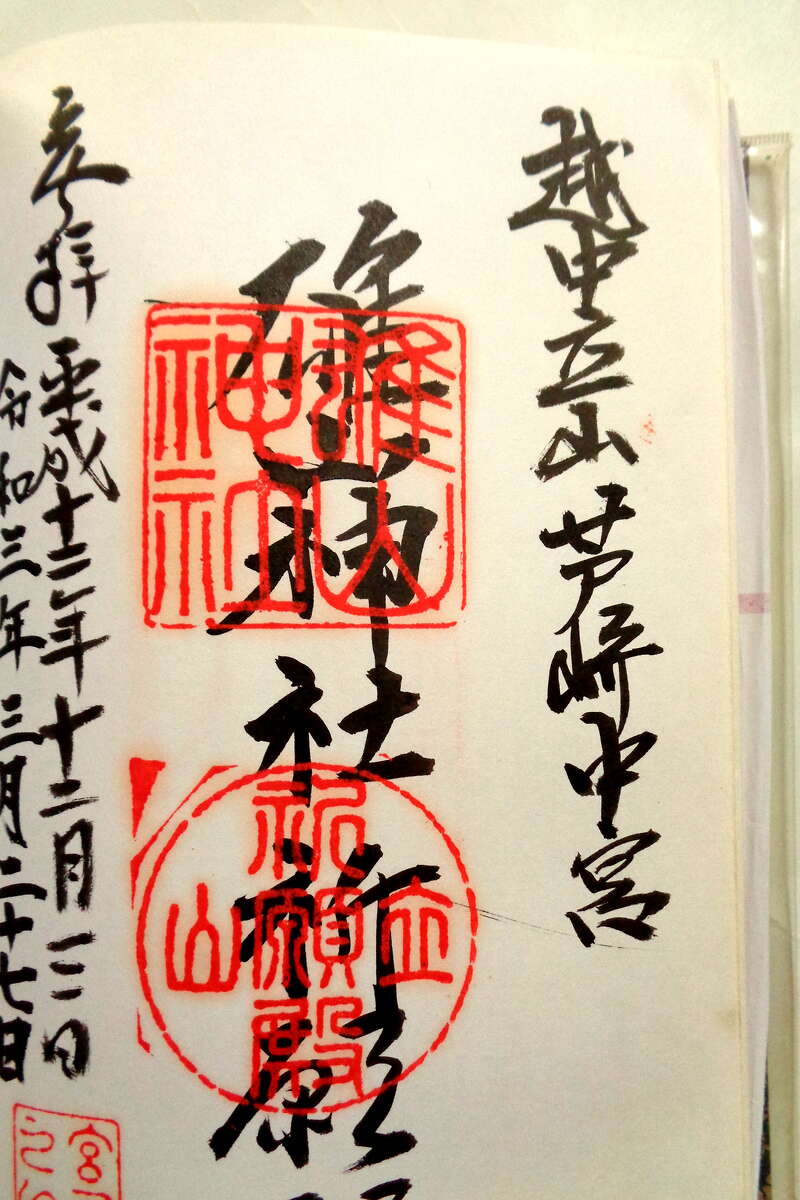 越中立山芦峅中宮
雄山神社祈願
雄山
神社
立山
祈願殿
奉拝 平成十二年十二月三日
令和三年三月二十七日